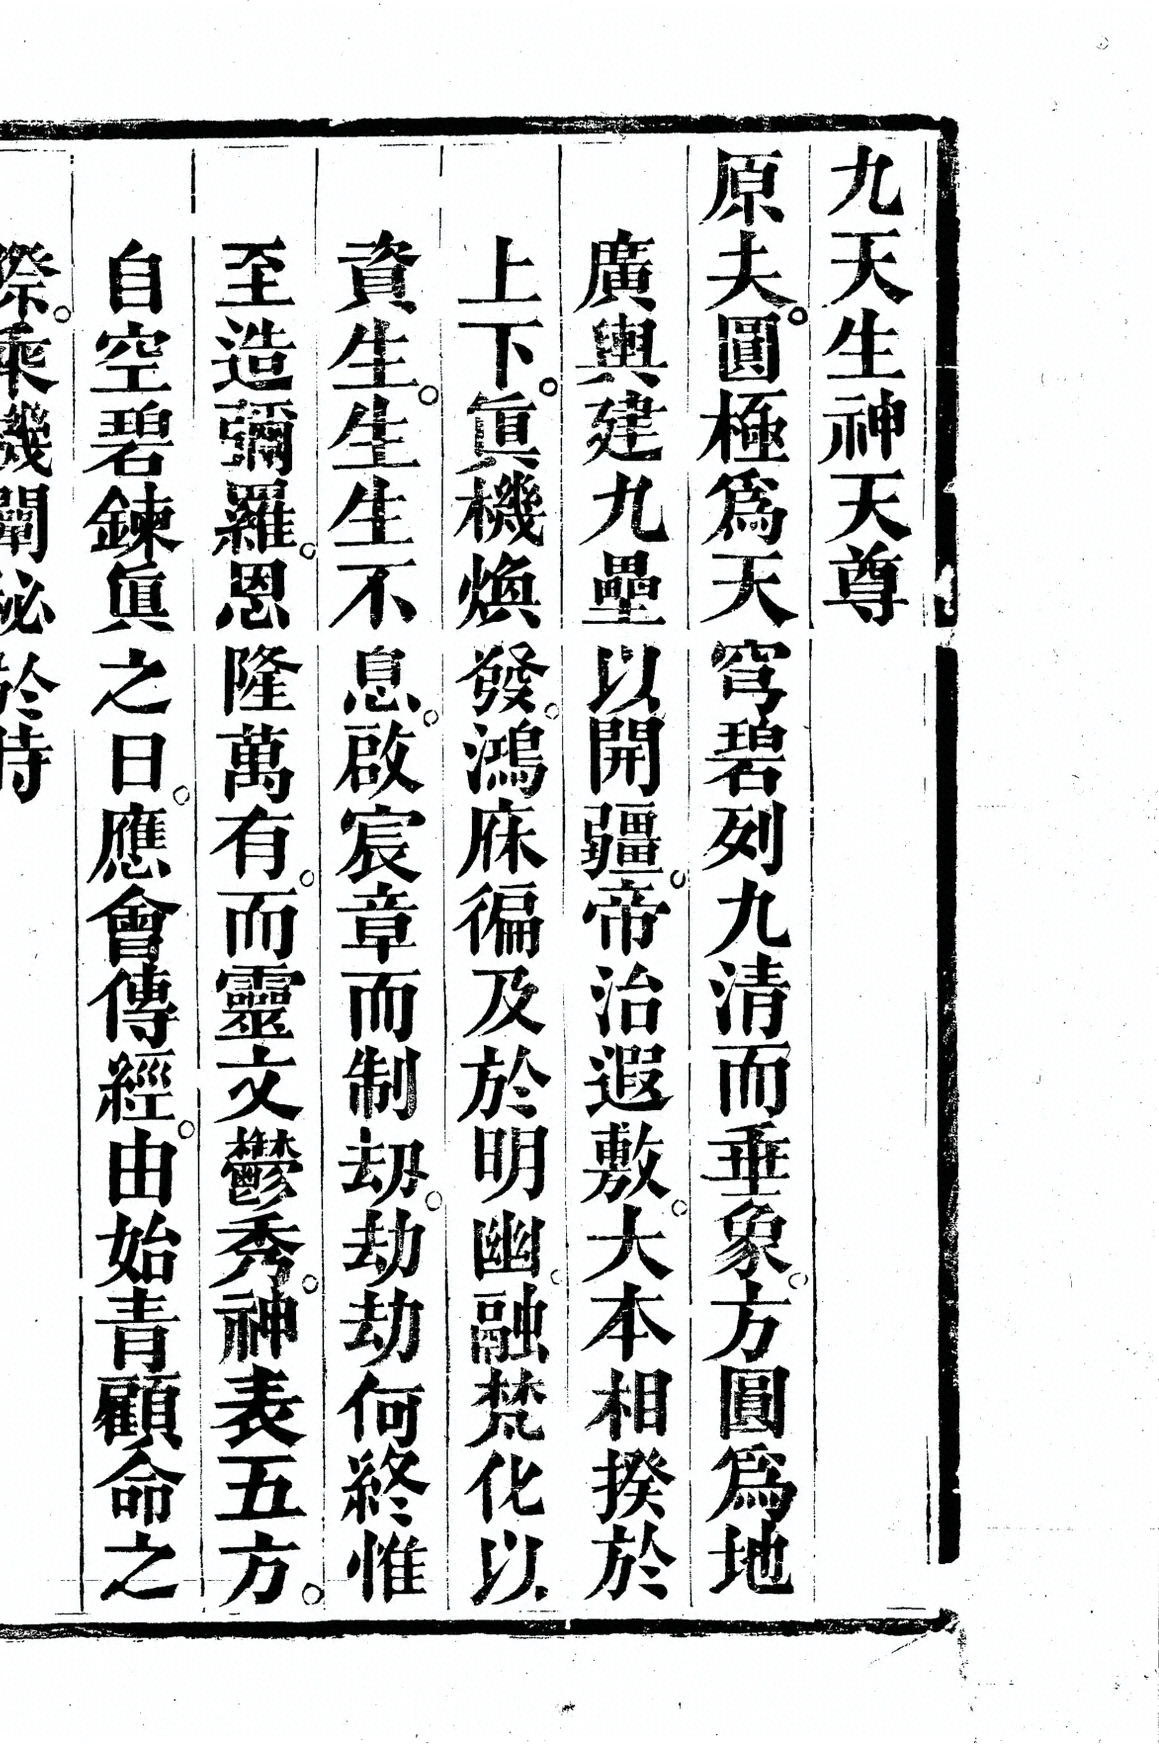 九天生神天尊
原夫。圓極爲天穹碧列九清而垂象。方圓爲地
廣輿建九壘以開疆。帝治遐敷。大本相揆於
上下。眞機煥發。鴻庥徧及於明幽。融梵化以
資生。生生不息。啟宸章而制刼。劫劫何終惟
至造彌羅。恩隆萬有。而靈文鬱秀。神表五方。
自空碧鍊眞之日。應會傳經。由始青顧命之
際。乘機闡秘於時